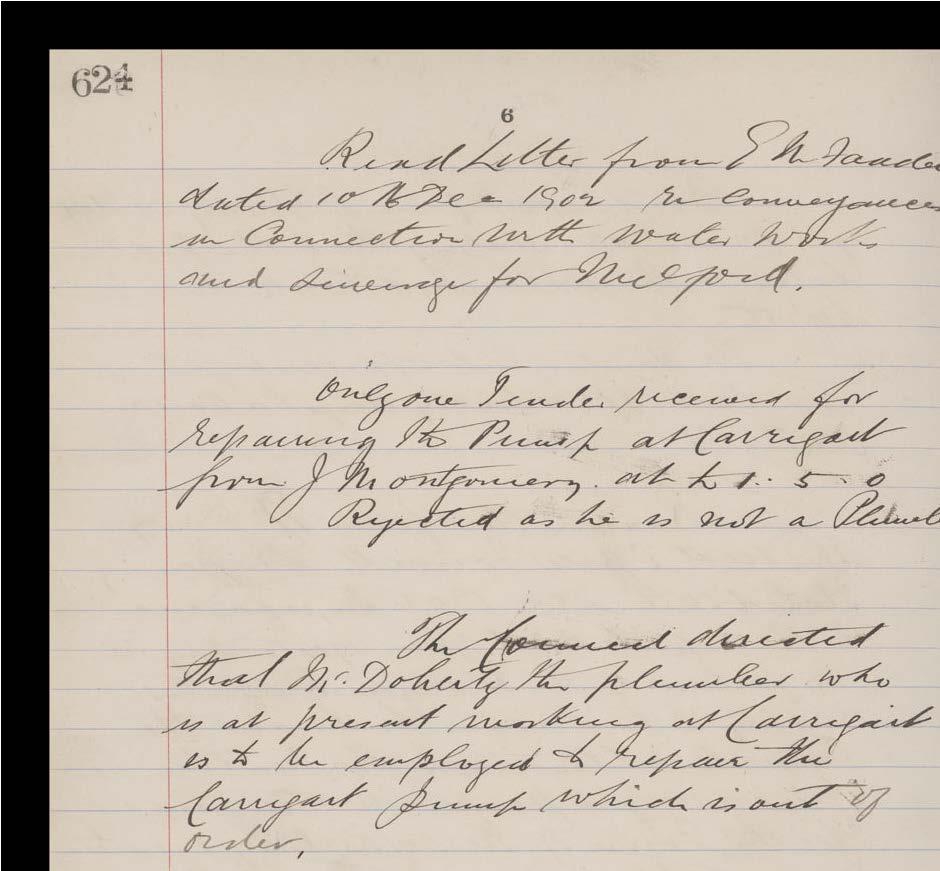 624
6
Read Letter from E M
dated 10th Dec 1902 re conveyances
in Connection with water works
and sewerage for Milford.
Only one Tender received for
repairing the Pump at Carrigart
from J Montgomery. at £ 1. 5. 0
Rejected as he is not a Plumb
The Council directed
that Mr. Doherty the plumber who
is at present working at Carrigart
is to be employed to repair the
Carrigart Pump which is out of
order.